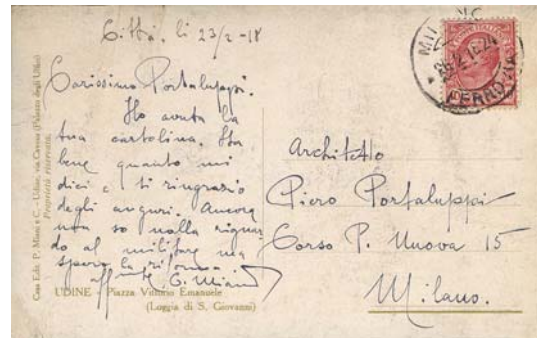 Città, li 23/2-18
Carissimo Portaluppi.
Ho avuta la
tua cartolina. Sta
bene quanto mi
dici e ti ringrazio
degli auguri. Ancora
non so nulla riguar
do al militare ma
spero la riforma
aff.
Casa Edit. P. Miani e C. - Udine, via Cavour (Palazzo degli Uffici)
Proprietà riservata.
UDINE - Piazza Vittorio Emanuele
(Loggia di S. Giovanni)
MILANO
FERROVIA
Architetto
Piero Portaluppi
Corso P. Nuova 15
Milano.